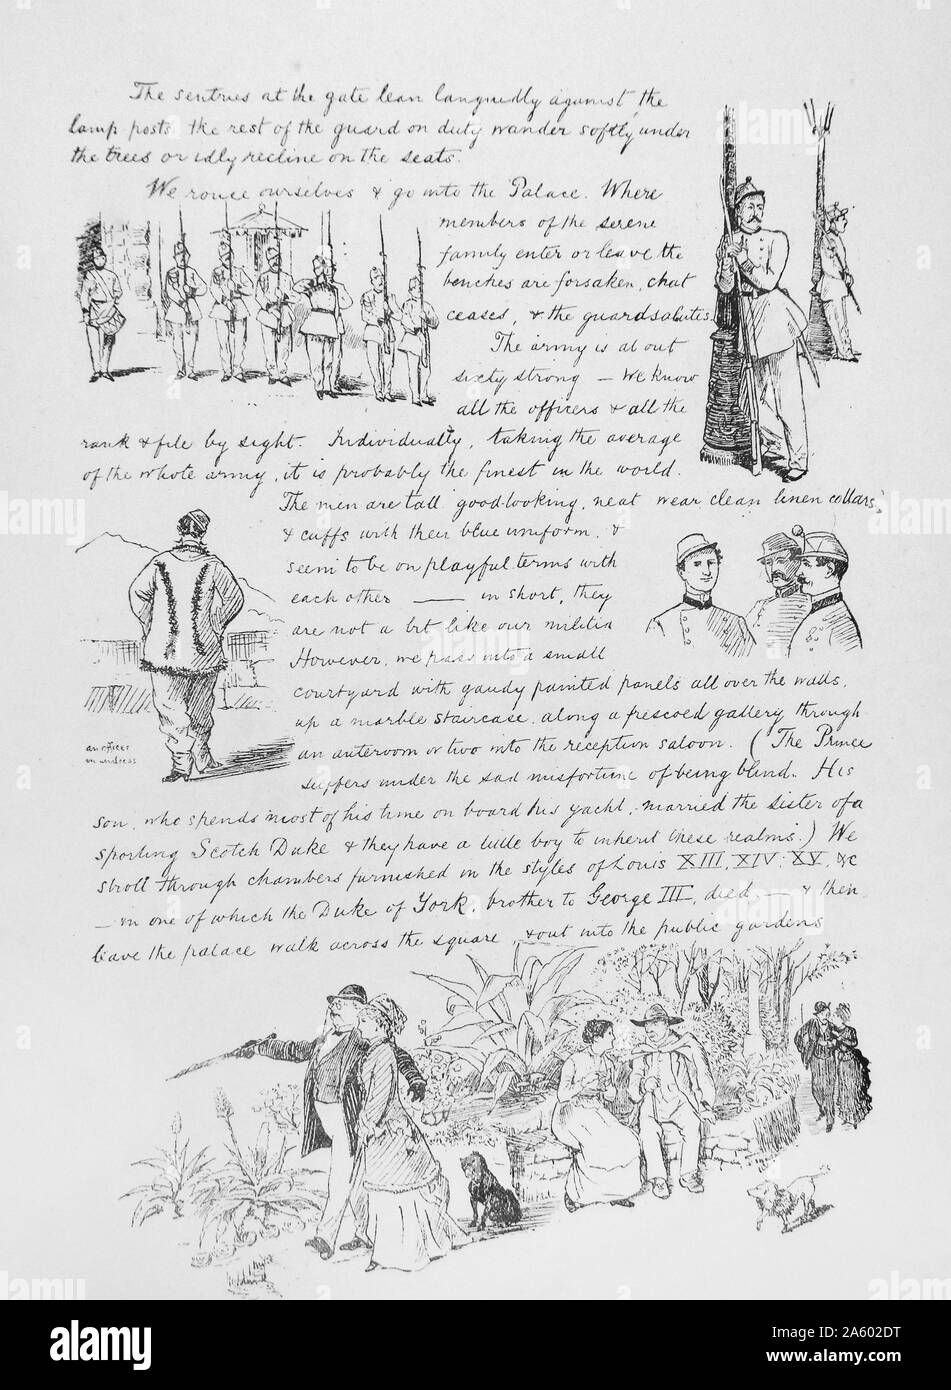 The sentries at the gate lean languidly against the
lamp posts. the rest of the guard on duty wander softly under
the trees or idly recline on the seats.
We rouce ourselves & go into the Palace. Where
members of the serene
family enter or leave the
benches are forsaken, chat
ceases, & the guard salutes.
The army is about
sixty strong — We know
all the officers & all the
rank & file by sight. Individually, taking the average
of the whole army, it is probably the finest in the world.
The men are tall good-looking, neat wear clean linen collars,
& cuffs with their blue uniform, &
seem to be on playful terms with
each other — in short, they
are not a bit like our militia
However, we pass into a small
courtyard with gaudy painted panels all over the walls,
up a marble staircase, along a frescoed gallery through
an anteroom or two into the reception saloon. (The Prince
suffers under the sad misfortune of being blind. His
son, who spends most of his time on board his yacht, married the sister of a
sporting Scotch Duke & they have a little boy to inherit these realms.) We
stroll through chambers furnished in the styles of Louis XIII, XIV, XV, &c
— in one of which the Duke of York, brother to George III, died, — & then
leave the palace walk across the square & out into the public gardens
an officer
in undress
alamy
Image ID: 2A602DT
www.alamy.com